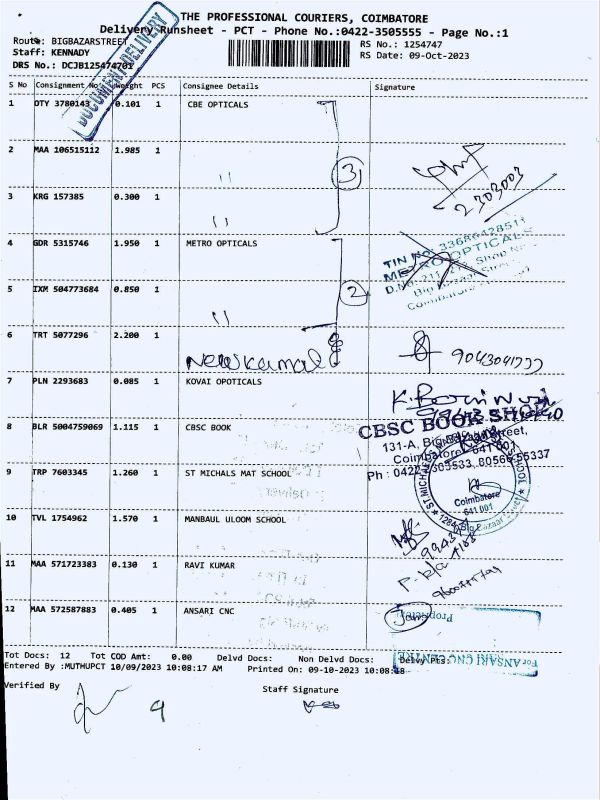 THE PROFESSIONAL COURIERS, COIMBATORE
Delivery Runsheet - PCT - Phone No.:0422-3505555 - Page No.:1
Route: BIGBAZARSTREET
RS No.: 1254747
Staff: KENNADY
RS Date: 09-Oct-2023
DRS No.: DCJB125474701
DOCUMENT DELIVERY
S No Consignment No Weight PCS Consignee Details Signature
1 OTY 3780143 0.101 1 CBE OPTICALS
2 MAA 106515112 1.985 1 "
3
2303003
3 KRG 157385 0.300 1 "
4 GDR 5315746 1.950 1 METRO OPTICALS
TIN NO. 33686428511
METRO OPTICALS
5 IXM 504773684 0.850 1 "
2
Big Bazaar Street
Coimbatore
6 TRT 5077296 2.200 1 New kamal
7 PLN 2293683 0.085 1 KOVAI OPOTICALS
8 BLR 5004759069 1.115 1 CBSC BOOK
CBSC BOOK SHOP
131-A, Big Bazaar Street,
Coimbatore - 641 001
Ph : 0422-2305533, 80566 55337
9 TRP 7603345 1.260 1 ST MICHALS MAT SCHOOL
Coimbatore
641 001
10 TVL 1754962 1.570 1 MANBAUL ULOOM SCHOOL
11 MAA 571723383 0.130 1 RAVI KUMAR
12 MAA 572587883 0.405 1 ANSARI CNC
Proprietor
For ANSARI CNC CENTRE
Tot Docs: 12 Tot COD Amt: 0.00 Delvd Docs: Non Delvd Docs: Delvry Pts:
Entered By :MUTHUPCT 10/09/2023 10:08:17 AM Printed On: 09-10-2023 10:08:18
Verified By
Staff Signature
9